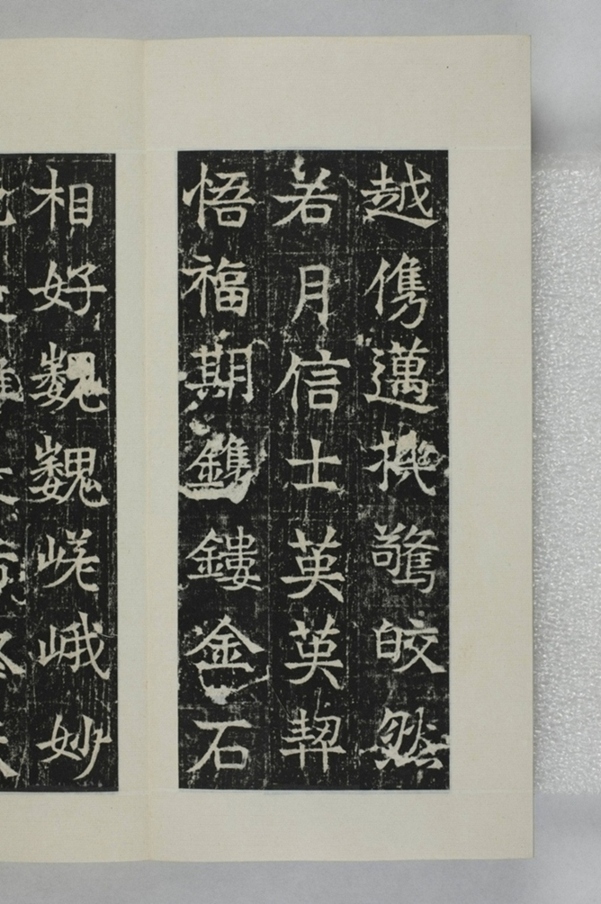 越儁邁機驚皎然
若月信士英英契
悟福期鐫鏤金石
相好巍巍嵯峨妙